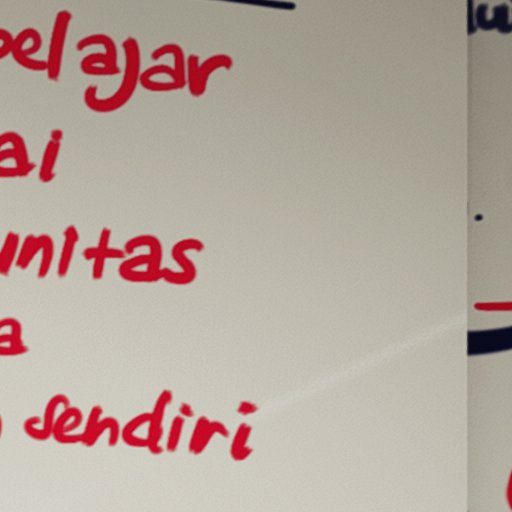 pelajar
ai
unitas
a
sendiri